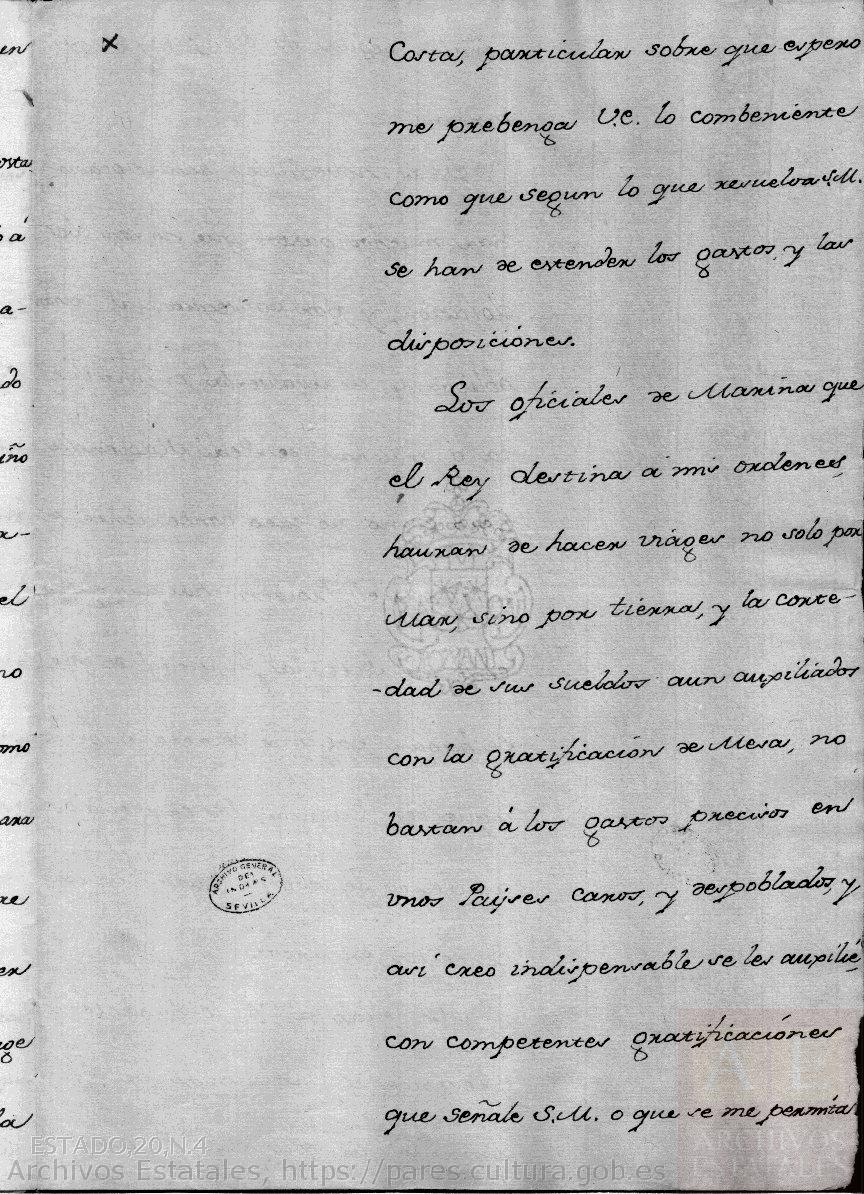 en
osta
ó á
a-
do
iño
x-
el
no
omo
ara
re
en
oge
la
x
Costa, particular sobre que espero
me prebenga V.E. lo combeniente
como que segun lo que resuelva S.M.
se han de estender los gastos, y las
disposiciónes.
Los oficiales de Marina que
el Rey destina á mis ordenes
hauran de hacer viáges no solo por
Mar, sino por tierra, y la corte-
-dad de sus sueldos aun auxiliados
con la gratificación de Mesa, no
bastan á los gastos precisos en
unos Paijses caros, y despoblados, y
así creo indispensable se les auxilié
con competentes gratificaciónes
que señale S.M. o que se me permita
ARCHIVO GENERAL
DE
INDIAS
SEVILLA
AE
ARCHIVOS
ESTATALES
ESTADO,20,N.4
Archivos Estatales, https://pares.cultura.gob.es